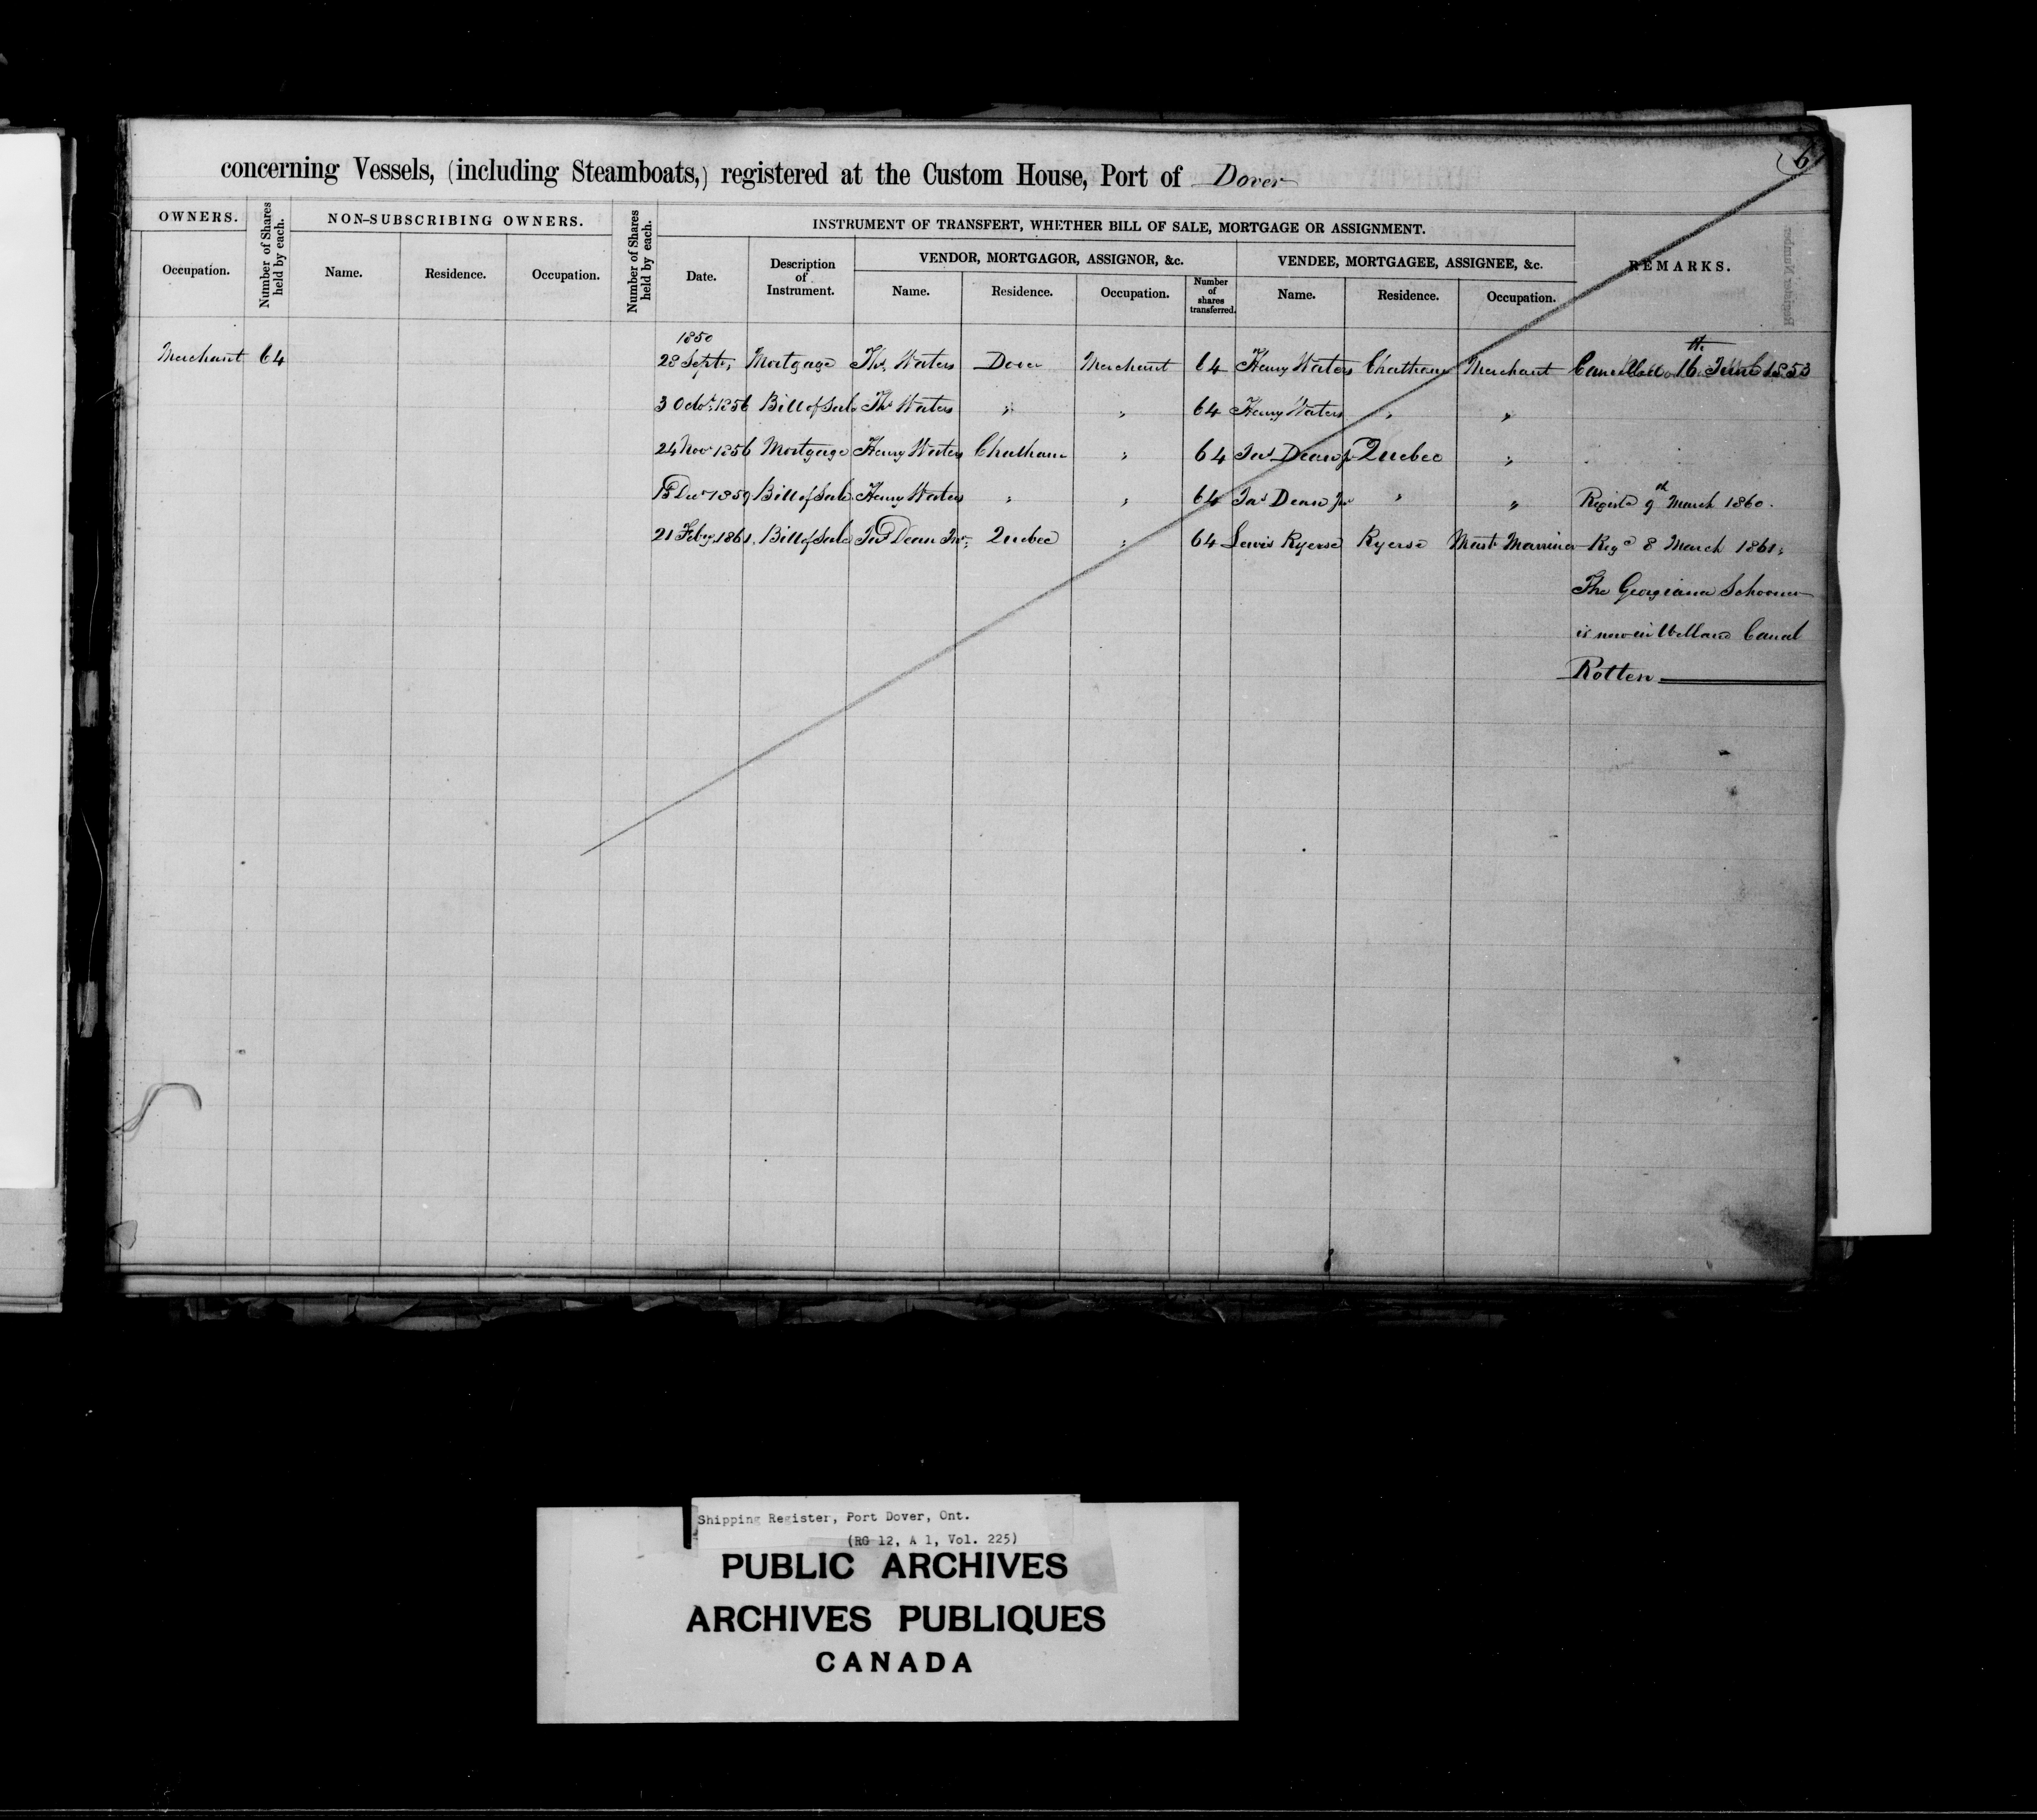 6
concerning Vessels, (including Steamboats,) registered at the Custom House, Port of Dover
OWNERS. Number of Shares held by each. NON-SUBSCRIBING OWNERS. Number of Shares held by each. INSTRUMENT OF TRANSFERT, WHETHER BILL OF SALE, MORTGAGE OR ASSIGNMENT. REMARKS.
VENDOR, MORTGAGOR, ASSIGNOR, &c. VENDEE, MORTGAGEE, ASSIGNEE, &c.
Occupation. Name. Residence. Occupation. Date. Description of Instrument. Name. Residence. Occupation. Number of shares transferred. Name. Residence. Occupation.
1850
Merchant 64 28 Septr, Mortgage Ths. Waters Dover Merchant 64 Henry Waters Chatham Merchant Cancelled 16th June 1853
3 Octr. 1856 Bill of Sale Ths Waters " " 64 Henry Waters " "
24 Novr 1856 Mortgage Henry Waters Chatham " 64 Jas Dean jr Quebec "
15 Decr 1859 Bill of Sale Henry Waters " " 64 Jas Dean Jr " " Registd 9th March 1860.
21 Feby. 1861. Bill of Sale Jas Dean Jnr. Quebec " 64 Lewis Ryerse Ryerse Mast Marriner Regd 8 March 1861.
The Georgiana Schooner
is now in Welland Canal
Rotten
Shipping Register, Port Dover, Ont.
(RG 12, A 1, Vol. 225)
PUBLIC ARCHIVES
ARCHIVES PUBLIQUES
CANADA